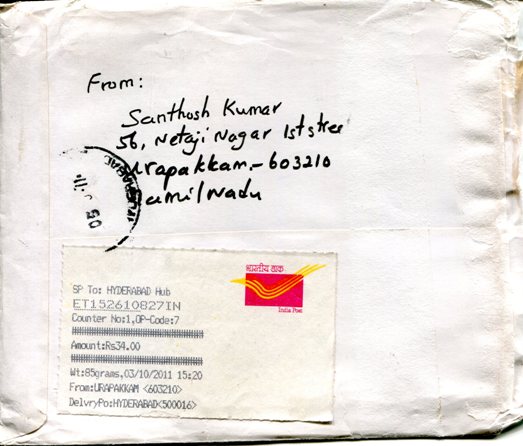 From:
Santhosh Kumar
56, Netaji Nagar 1st stree
Urapakkam.-603210
Tamilnadu
05
भारतीय डाक
India Post
SP To: HYDERABAD Hub
ET152610827IN
Counter No:1,OP-Code:7
Amount:Rs34.00
Wt:85grams,03/10/2011 15:20
From:URAPAKKAM <603210>
DelvryPo:HYDERABAD<500016>